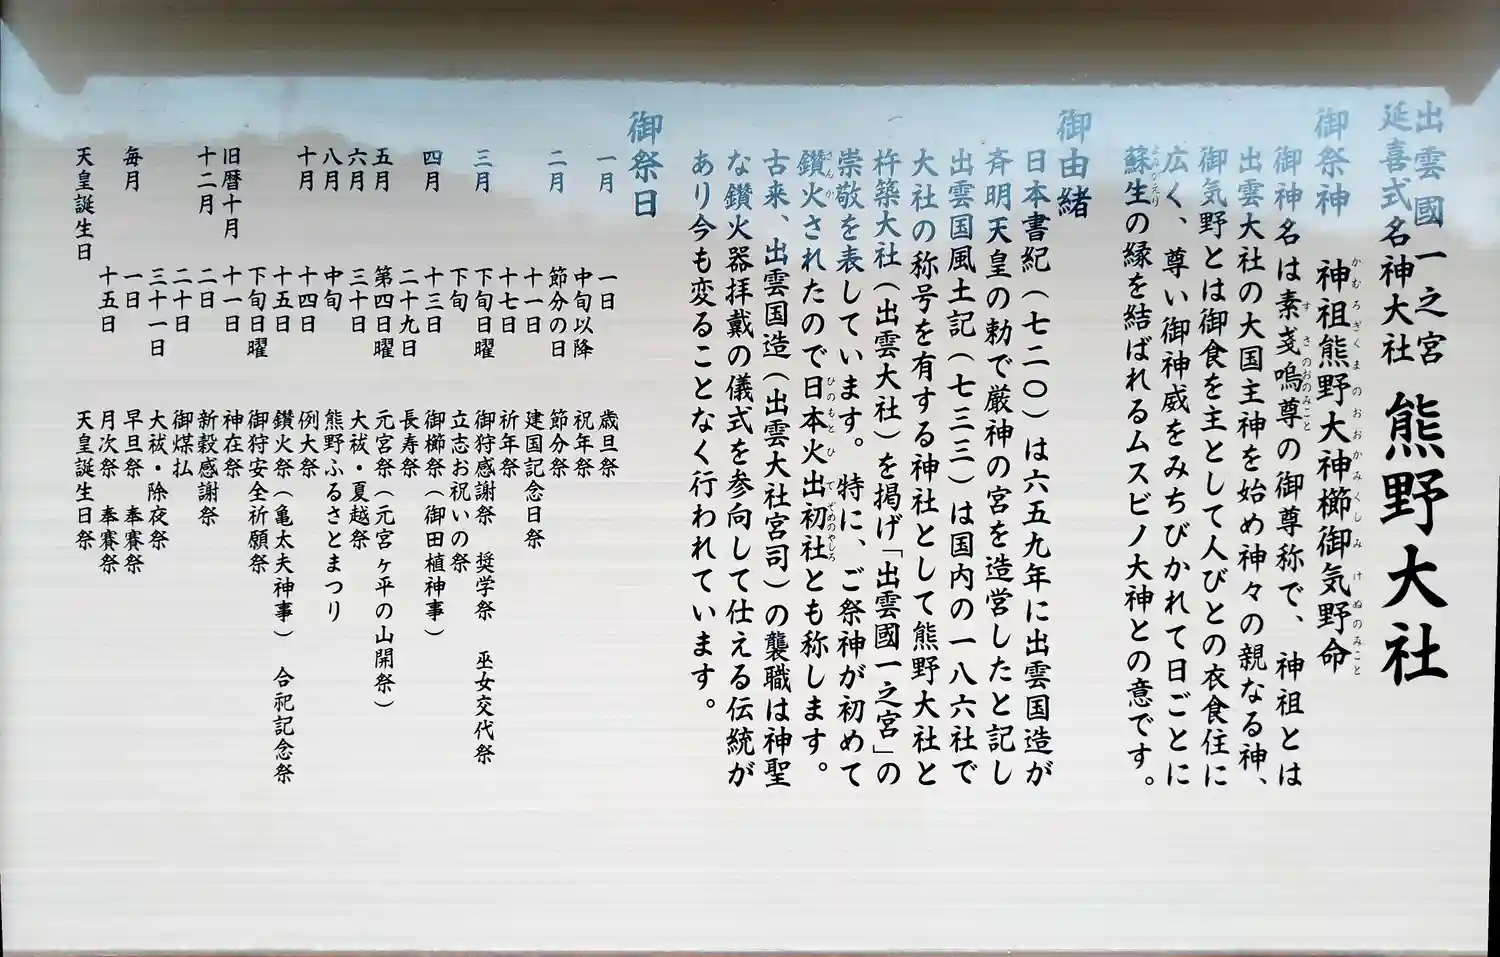 出雲國一之宮
延喜式名神大社
熊野大社
御祭神　神祖熊野大神櫛御気野命
かむろぎくまのおおかみくしみけぬのみこと
御神名は素戔嗚尊の御尊称で、神祖とは
すさのおのみこと
出雲大社の大国主神を始め神々の親なる神、
御気野とは御食を主として人びとの衣食住に
広く、尊い御神威をみちびかれて日ごとに
蘇生の縁を結ばれるムスビノ大神との意です。
よみがえり
御由緒
日本書紀（七二〇）は六五九年に出雲国造が
斉明天皇の勅で厳神の宮を造営したと記し
出雲国風土記（七三三）は国内の一八六社で
大社の称号を有する神社として熊野大社と
杵築大社（出雲大社）を掲げ「出雲國一之宮」の
崇敬を表しています。特に、ご祭神が初めて
鑚火されたので日本火出初社とも称します。
さんか　ひのもとひでぞめのやしろ
古来、出雲国造（出雲大社宮司）の襲職は神聖
な鑚火器拝戴の儀式を参向して仕える伝統が
あり今も変ることなく行われています。
御祭日
一月　一日　歳旦祭
中旬以降　祝年祭
二月　節分の日　節分祭
十一日　建国記念日祭
十七日　祈年祭
三月　下旬日曜　御狩感謝祭　奨学祭　巫女交代祭
下旬　立志お祝いの祭
四月　十三日　御櫛祭（御田植神事）
二十九日　長寿祭
五月　第四日曜　元宮祭（元宮ヶ平の山開祭）
六月　三十日　大祓・夏越祭
八月　中旬　熊野ふるさとまつり
十月　十四日　例大祭
十五日　鑚火祭（亀太夫神事）　合祀記念祭
下旬日曜　御狩安全祈願祭
旧暦十月　十一日　神在祭
十二月　二日　新穀感謝祭
二十日　御煤払
三十一日　大祓・除夜祭
毎月　一日　早旦祭　奉賽祭
十五日　月次祭　奉賽祭
天皇誕生日　天皇誕生日祭